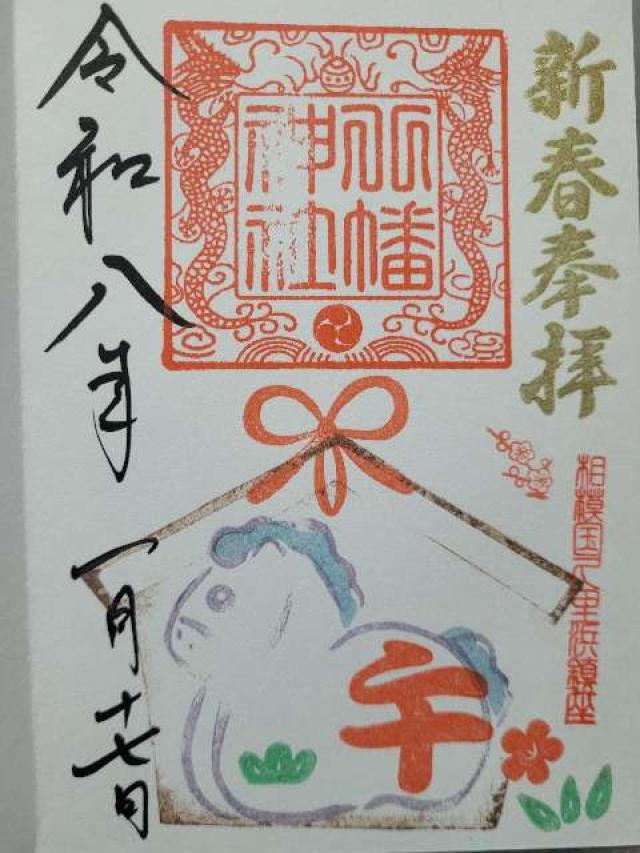 新春奉拝
相模国久里浜鎮座
八幡神社
午
令和八年
一月十七日